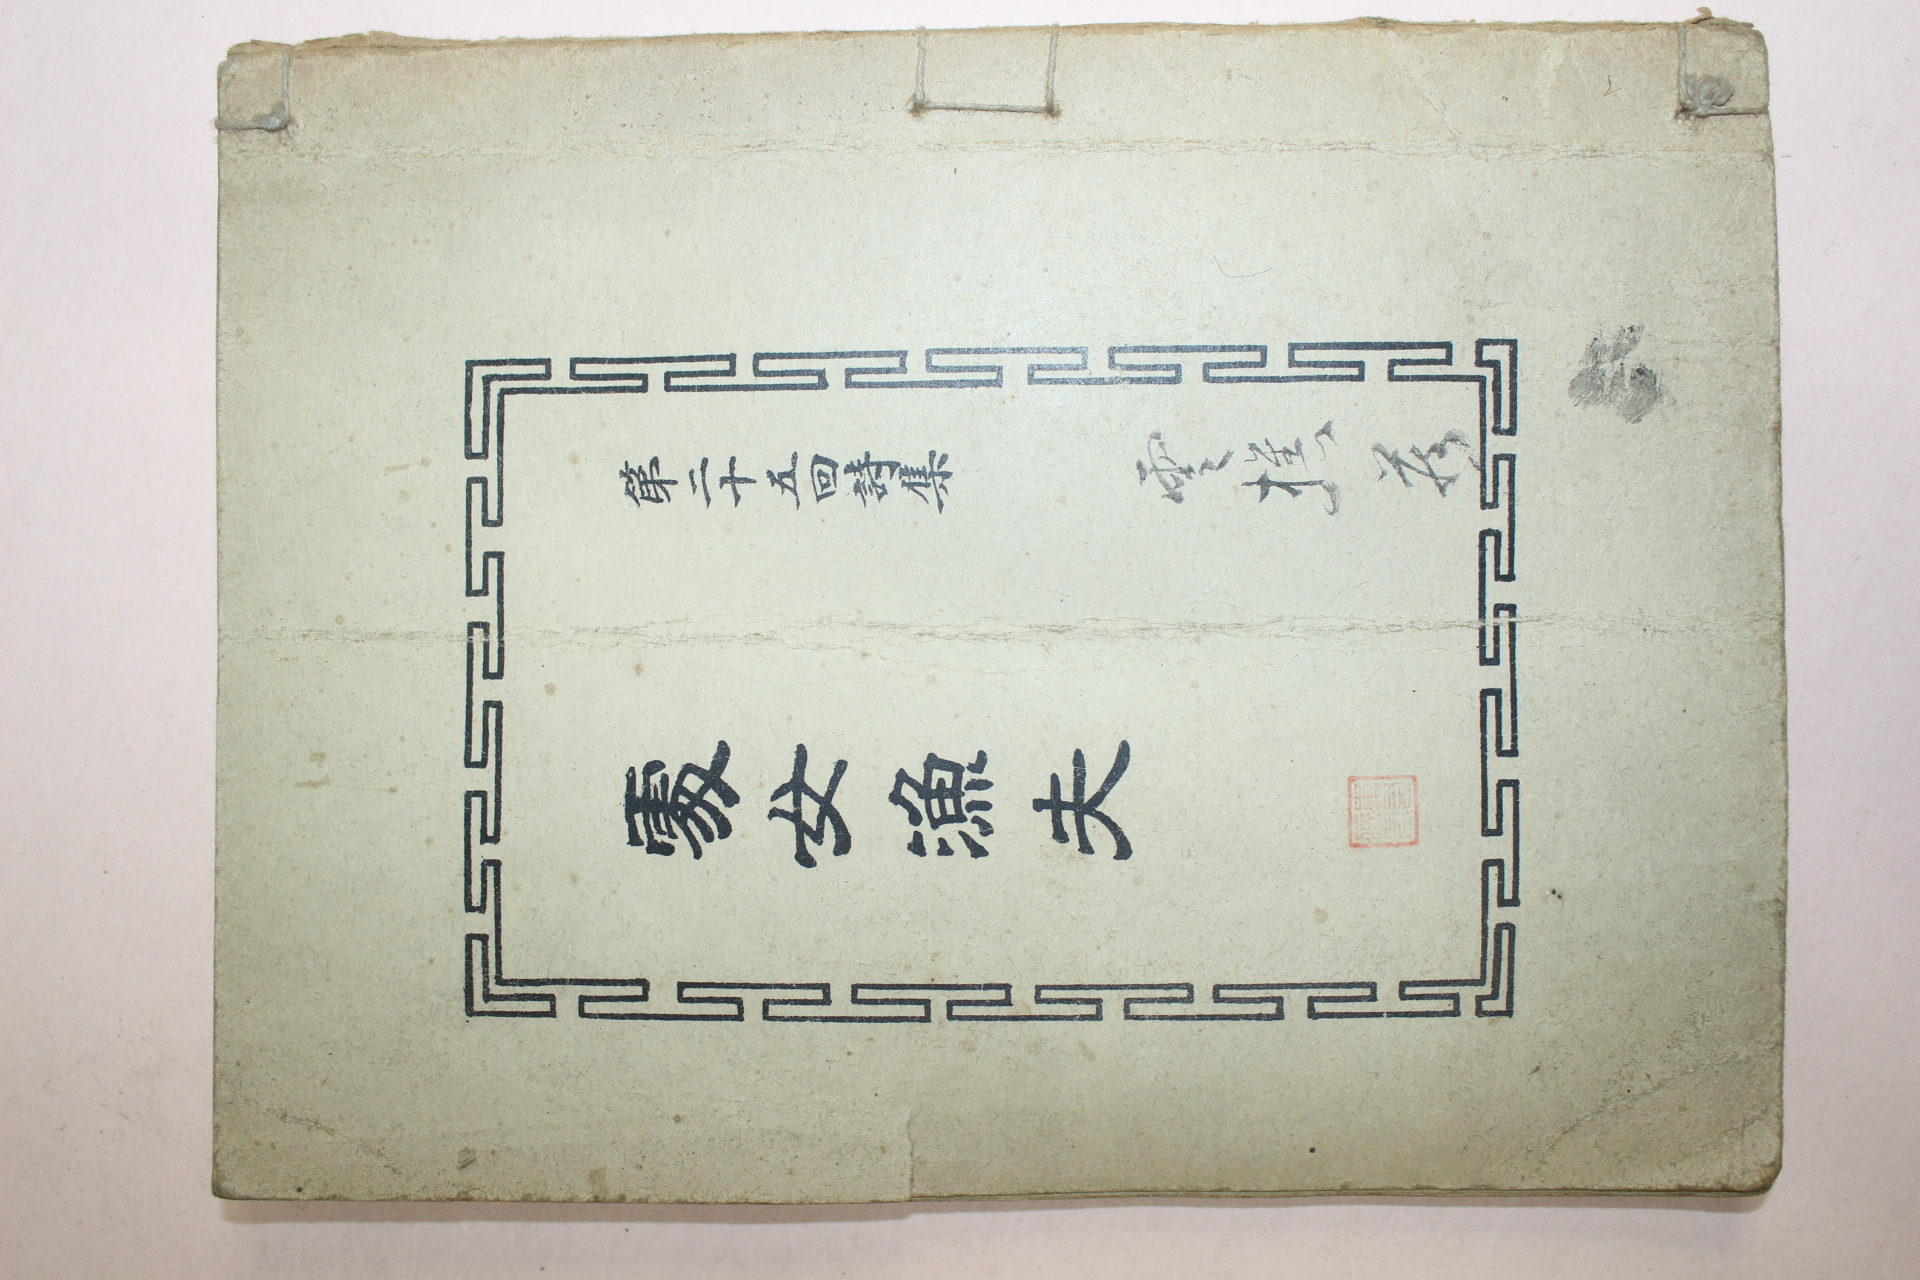 第二十五回詩集
雲樵
處女漁夫